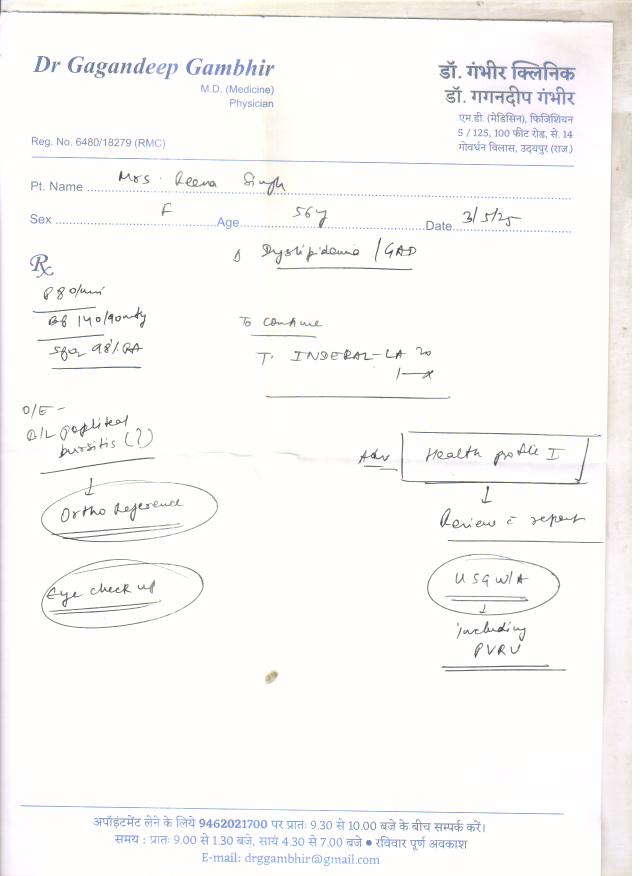 Dr Gagandeep Gambhir
M.D. (Medicine)
Physician
Reg. No. 6480/18279 (RMC)
डॉ. गंभीर क्लिनिक
डॉ. गगनदीप गंभीर
एम.डी. (मेडिसिन), फिजिशियन
5 / 125, 100 फीट रोड, से. 14
गोवर्धन विलास, उदयपुर (राज.)
Pt. Name Mrs. Reena Singh
Sex F Age 56y Date 3/5/25
Rx
Dyslipidemia / GAD
P 80/min
BP 140/90 mmHg
SpO2 98% RA
To continue
T. INDERAL-LA 20
O/E -
B/L popliteal
bursitis (?)
Ortho Reference
Eye check up
Adv Health profile I
Review c̄ report
USG W/A
including
PVRU
अपॉइंटमेंट लेने के लिये 9462021700 पर प्रातः 9.30 से 10.00 बजे के बीच सम्पर्क करें।
समय : प्रातः 9.00 से 1.30 बजे, सायं 4.30 से 7.00 बजे ● रविवार पूर्ण अवकाश
E-mail: drggambhir@gmail.com